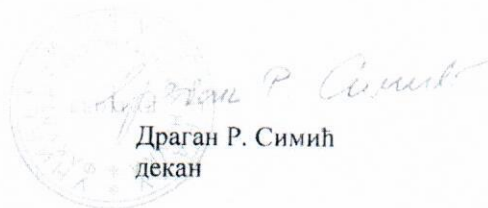 Драган Р. Симић
Драган Р. Симић
декан